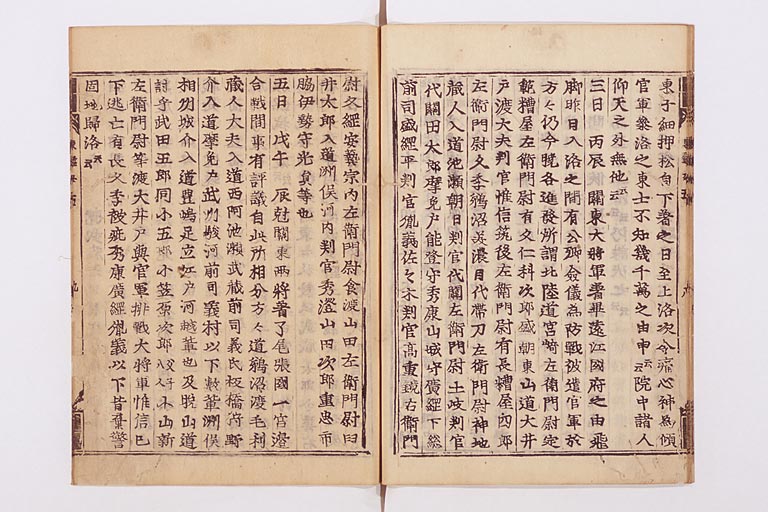 東子細押松自下著之日至上洛次今痛心神為傾
官軍衆洛之東士不知幾千萬之由申云々院中諸人
仰天之外無他云々
三日丙辰關東大將軍著遠江國府之由飛
脚昨日入洛之間有公卿僉儀為防戰被遣官軍於
方々仍今曉各進發所謂北陸道宮崎左衛門尉定
範糟屋左衛門尉有久仁科次郎盛朝東山道大井
戸渡大夫判官惟信筑後左衛門尉有長糟屋四郎
左衛門尉久季鵜沼美濃目代帶刀左衛門尉神地
藏人入道池瀬朝日判官代關左衛門尉土岐判官
代關田太郎摩免戸能登守秀康山城守廣經下総
前司盛經平判官胤義佐々木判官高重鏡右衛門
尉久經安藝宗内左衛門尉食渡山田左衛門尉臼
井太郎入道洲俣河内判官秀澄山田次郎重忠市
脇伊勢守光員等也
五日戊午辰尅關東兩將著于尾張國一宮邊
合戰間事有評議自此所相分方々道鵜沼渡毛利
藏人大夫入道西阿池瀬武藏前司義氏板橋狩野
介入道摩免戸武州駿河前司義村以下數輩洲俣
相州城介入道豊嶋足立江戸河越輩也及晩山道
討手武田五郎同小五郎小笠原次郎小山新
左衛門尉等渡大井戸與官軍挑戰大將軍惟信已
下逃亡有長久季被疵秀康廣經胤義以下皆棄警
固地歸洛云々